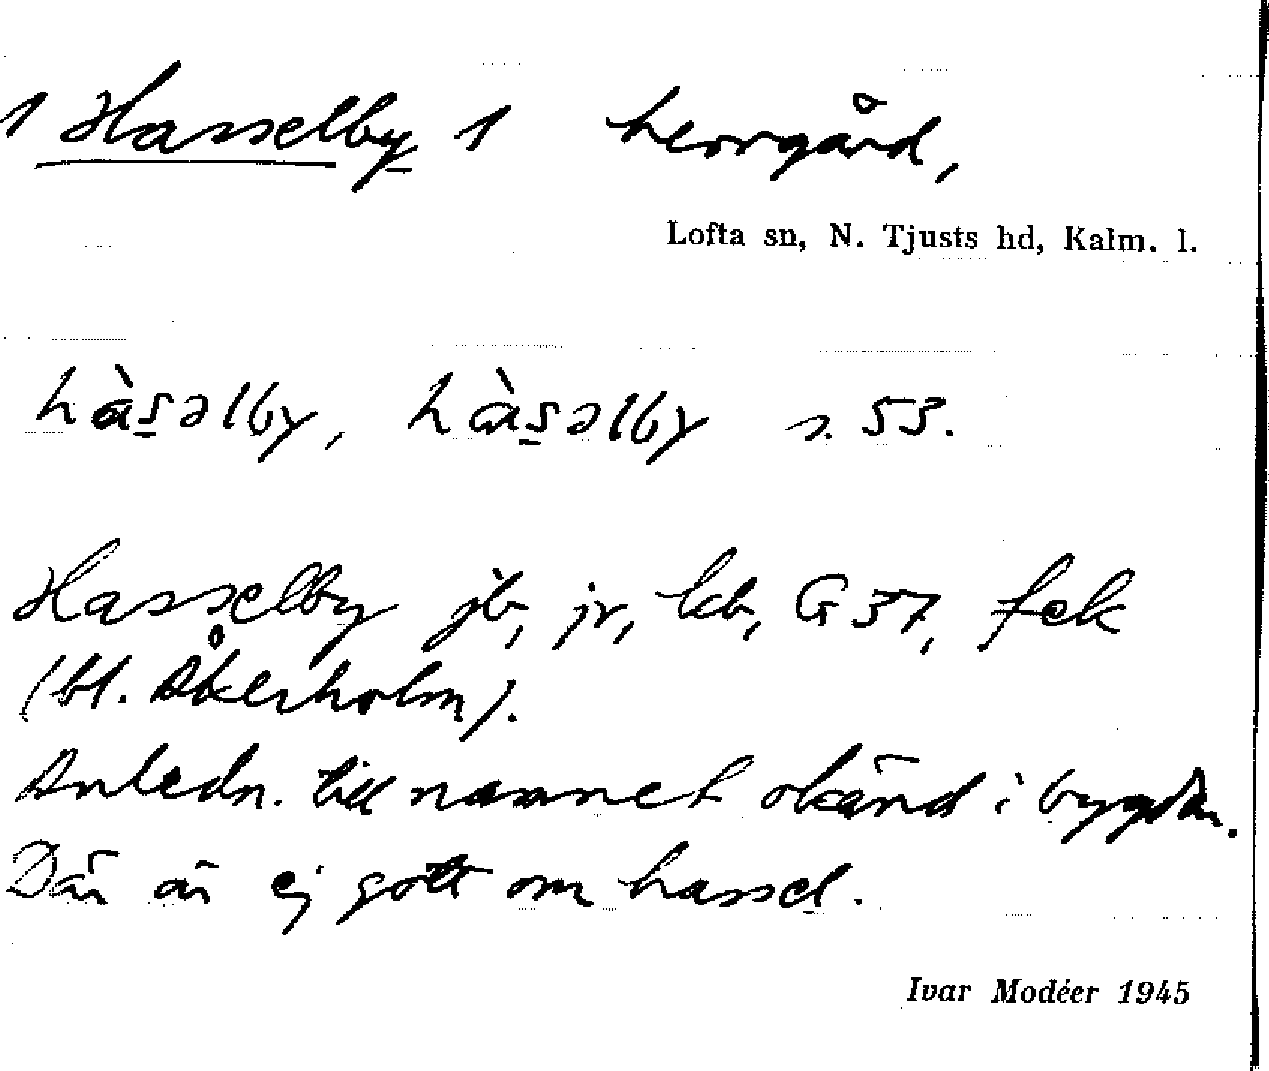 1 Hasselby 1 herrgård,
Lofta sn, N. Tjusts hd, Kalm. l.
hàsəlby, hàsəlby s. 53.
Hasselby jb, jr, kb, G 37, fek
(bl. Åkerholm).
Anledn. till namnet okänd i bygden.
Där är ej gott om hassel.
Ivar Modéer 1945